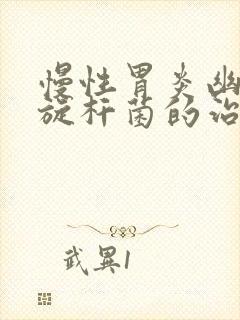 慢性胃炎幽
旋杆菌的治
武異1